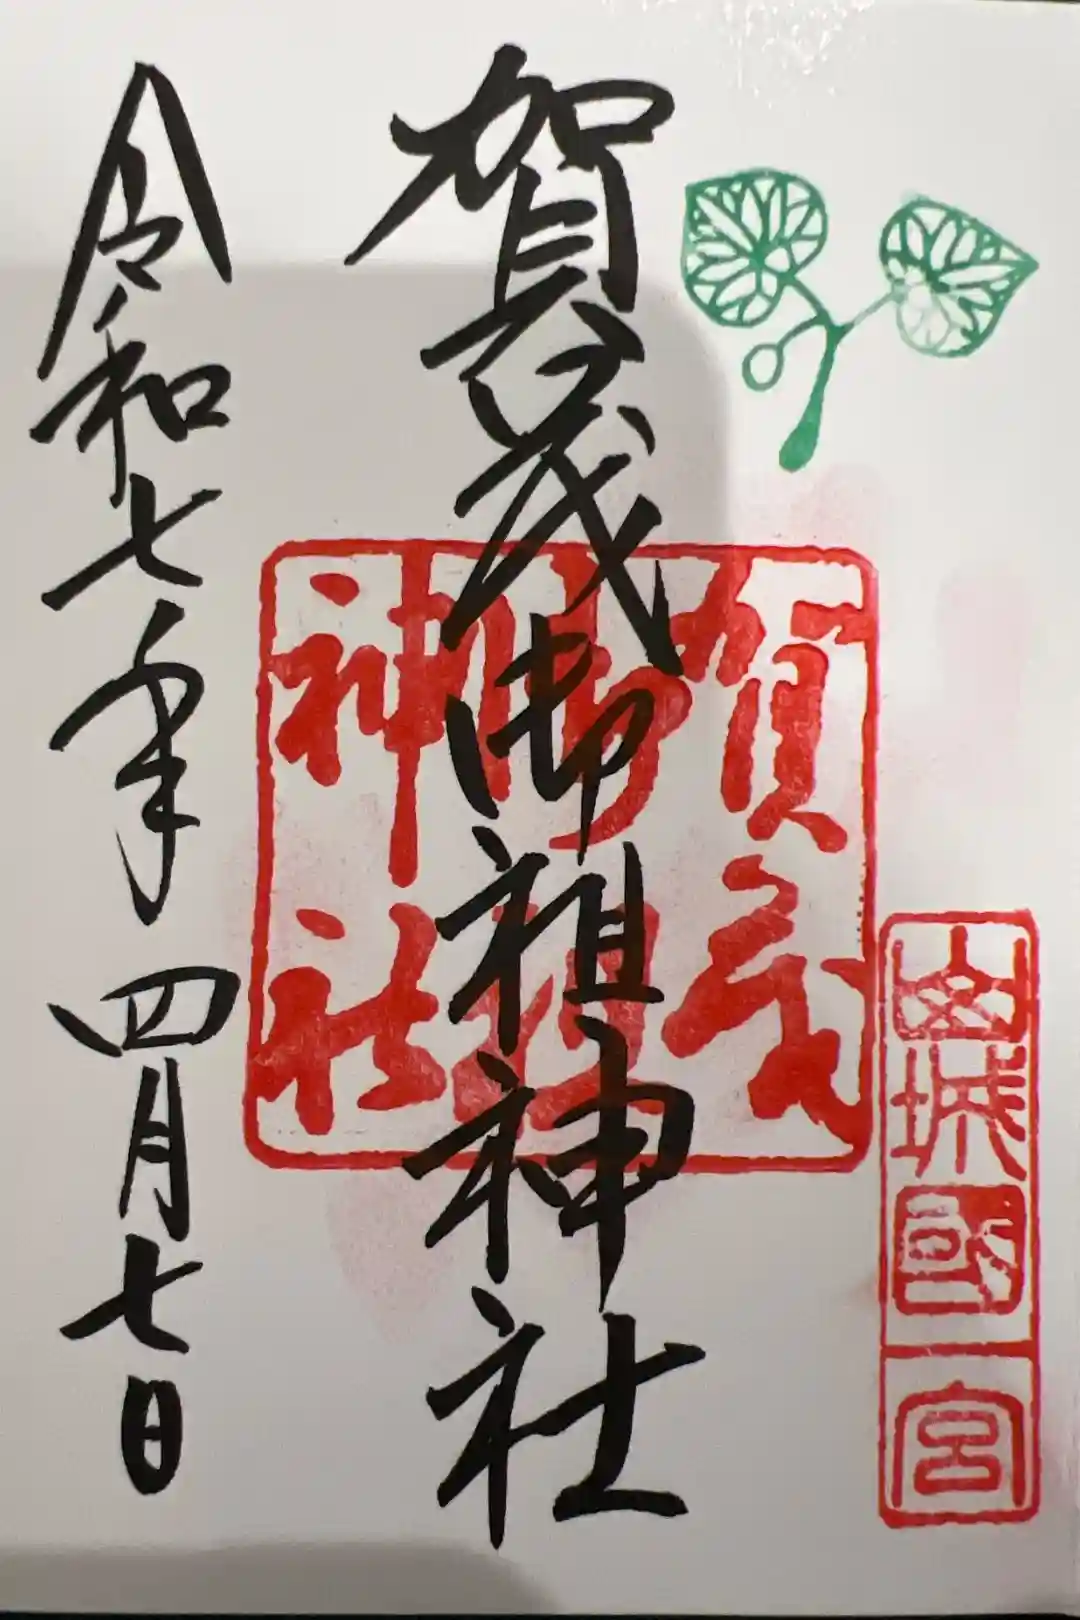 山城國一宮
賀茂御祖神社
賀茂
御祖
神社
令和七年四月七日